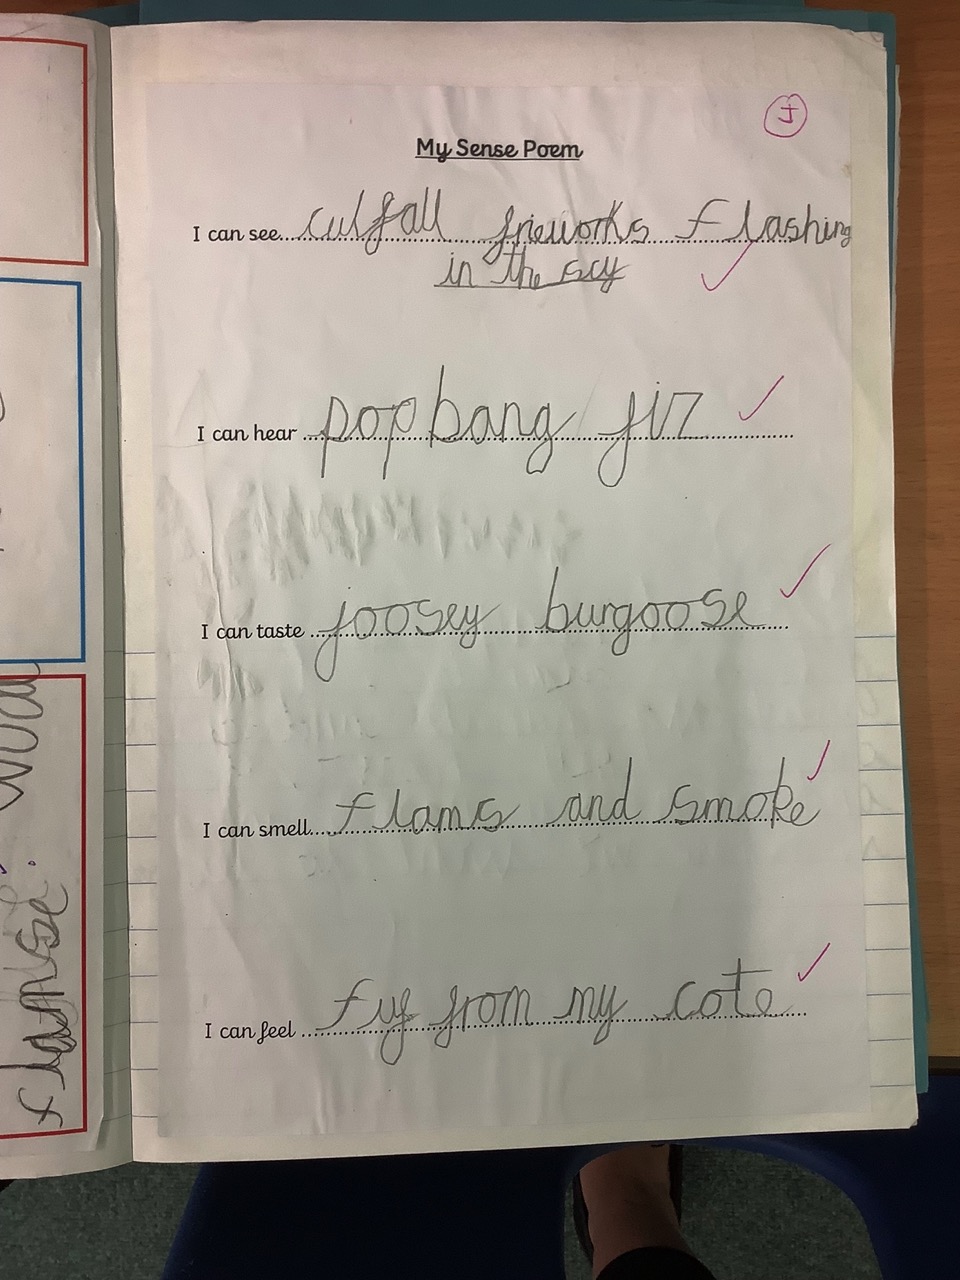 J
My Sense Poem
I can see culfall frieworks flashing
in the scy
I can hear pop bang fiz
I can taste joosey burgoose
I can smell flams and smoke
I can feel fyf from my cote
flamse